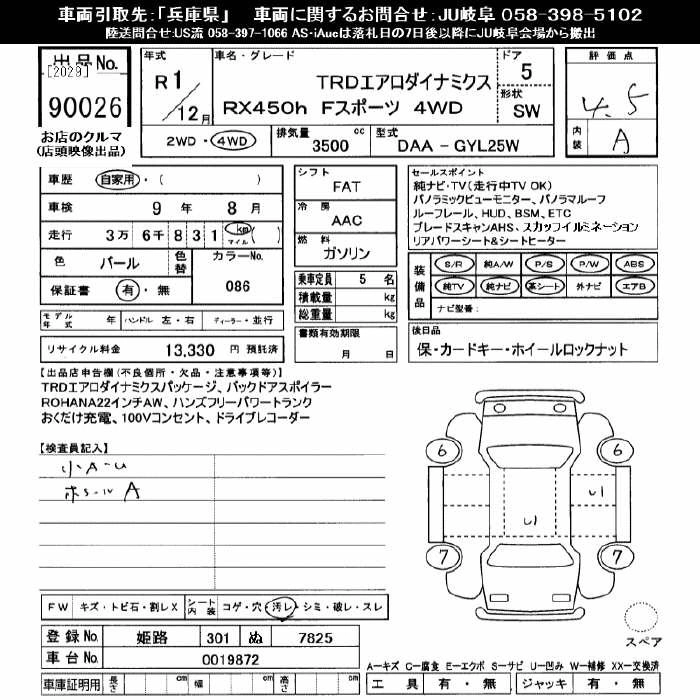 車両引取先:「兵庫県」 車両に関するお問合せ:JU岐阜 058-398-5102
陸送問合せ:US流 058-397-1066 AS-iAucは落札日の7日後以降にJU岐阜会場から搬出
出品No.
[2029]
90026
お店のクルマ
(店頭映像出品)
年式 R1/12月
車名・グレード
TRDエアロダイナミクス
RX450h Fスポーツ 4WD
ドア 5
形状 SW
2WD・4WD
排気量 3500 cc
型式 DAA - GYL25W
評価点
4.5
内装 A
車歴 自家用・( )
車検 9年 8月
走行 3万 6千 8 3 1 km マイル ( )
色 パール 色替 カラーNo. 086
保証書 有・無
モデル年式 年 ハンドル 左・右 ディーラー・並行
リサイクル料金 13,330 円 預託済
シフト FAT
冷房 AAC
燃料 ガソリン
乗車定員 5 名
積載量 kg
総重量 kg
書類有効期限
月 日
セールスポイント
純ナビ・TV(走行中TV OK)
パノラミックビューモニター、パノラマルーフ
ルーフレール、HUD、BSM、ETC
ブレードスキャンAHS、スカッフイルミネーション
リアパワーシート&シートヒーター
装備品 S/R 純A/W P/S P/W ABS
純TV 純ナビ 革シート 外ナビ エアB
ナビ型番:
後日品
保・カードキー・ホイールロックナット
【出品店申告欄(不良個所・欠品・注意事項等)】
TRDエアロダイナミクスパッケージ、バックドアスポイラー
ROHANA22インチAW、ハンズフリーパワートランク
おくだけ充電、100Vコンセント、ドライブレコーダー
【検査員記入】
小A-U
ホイール A
6 6
U1
U1
7 7
スペア
FW キズ・トビ石・割レX シート内装 コゲ・穴・汚レ・シミ・破レ・スレ
登録No. 姫路 301 ぬ 7825
車台No. 0019872
車庫証明用 長さ cm 幅 cm 高さ cm
A-キズ C-腐食 E-エクボ S-サビ U-凹み W-補修 XX-交換済
工具 有・無 ジャッキ 有・無